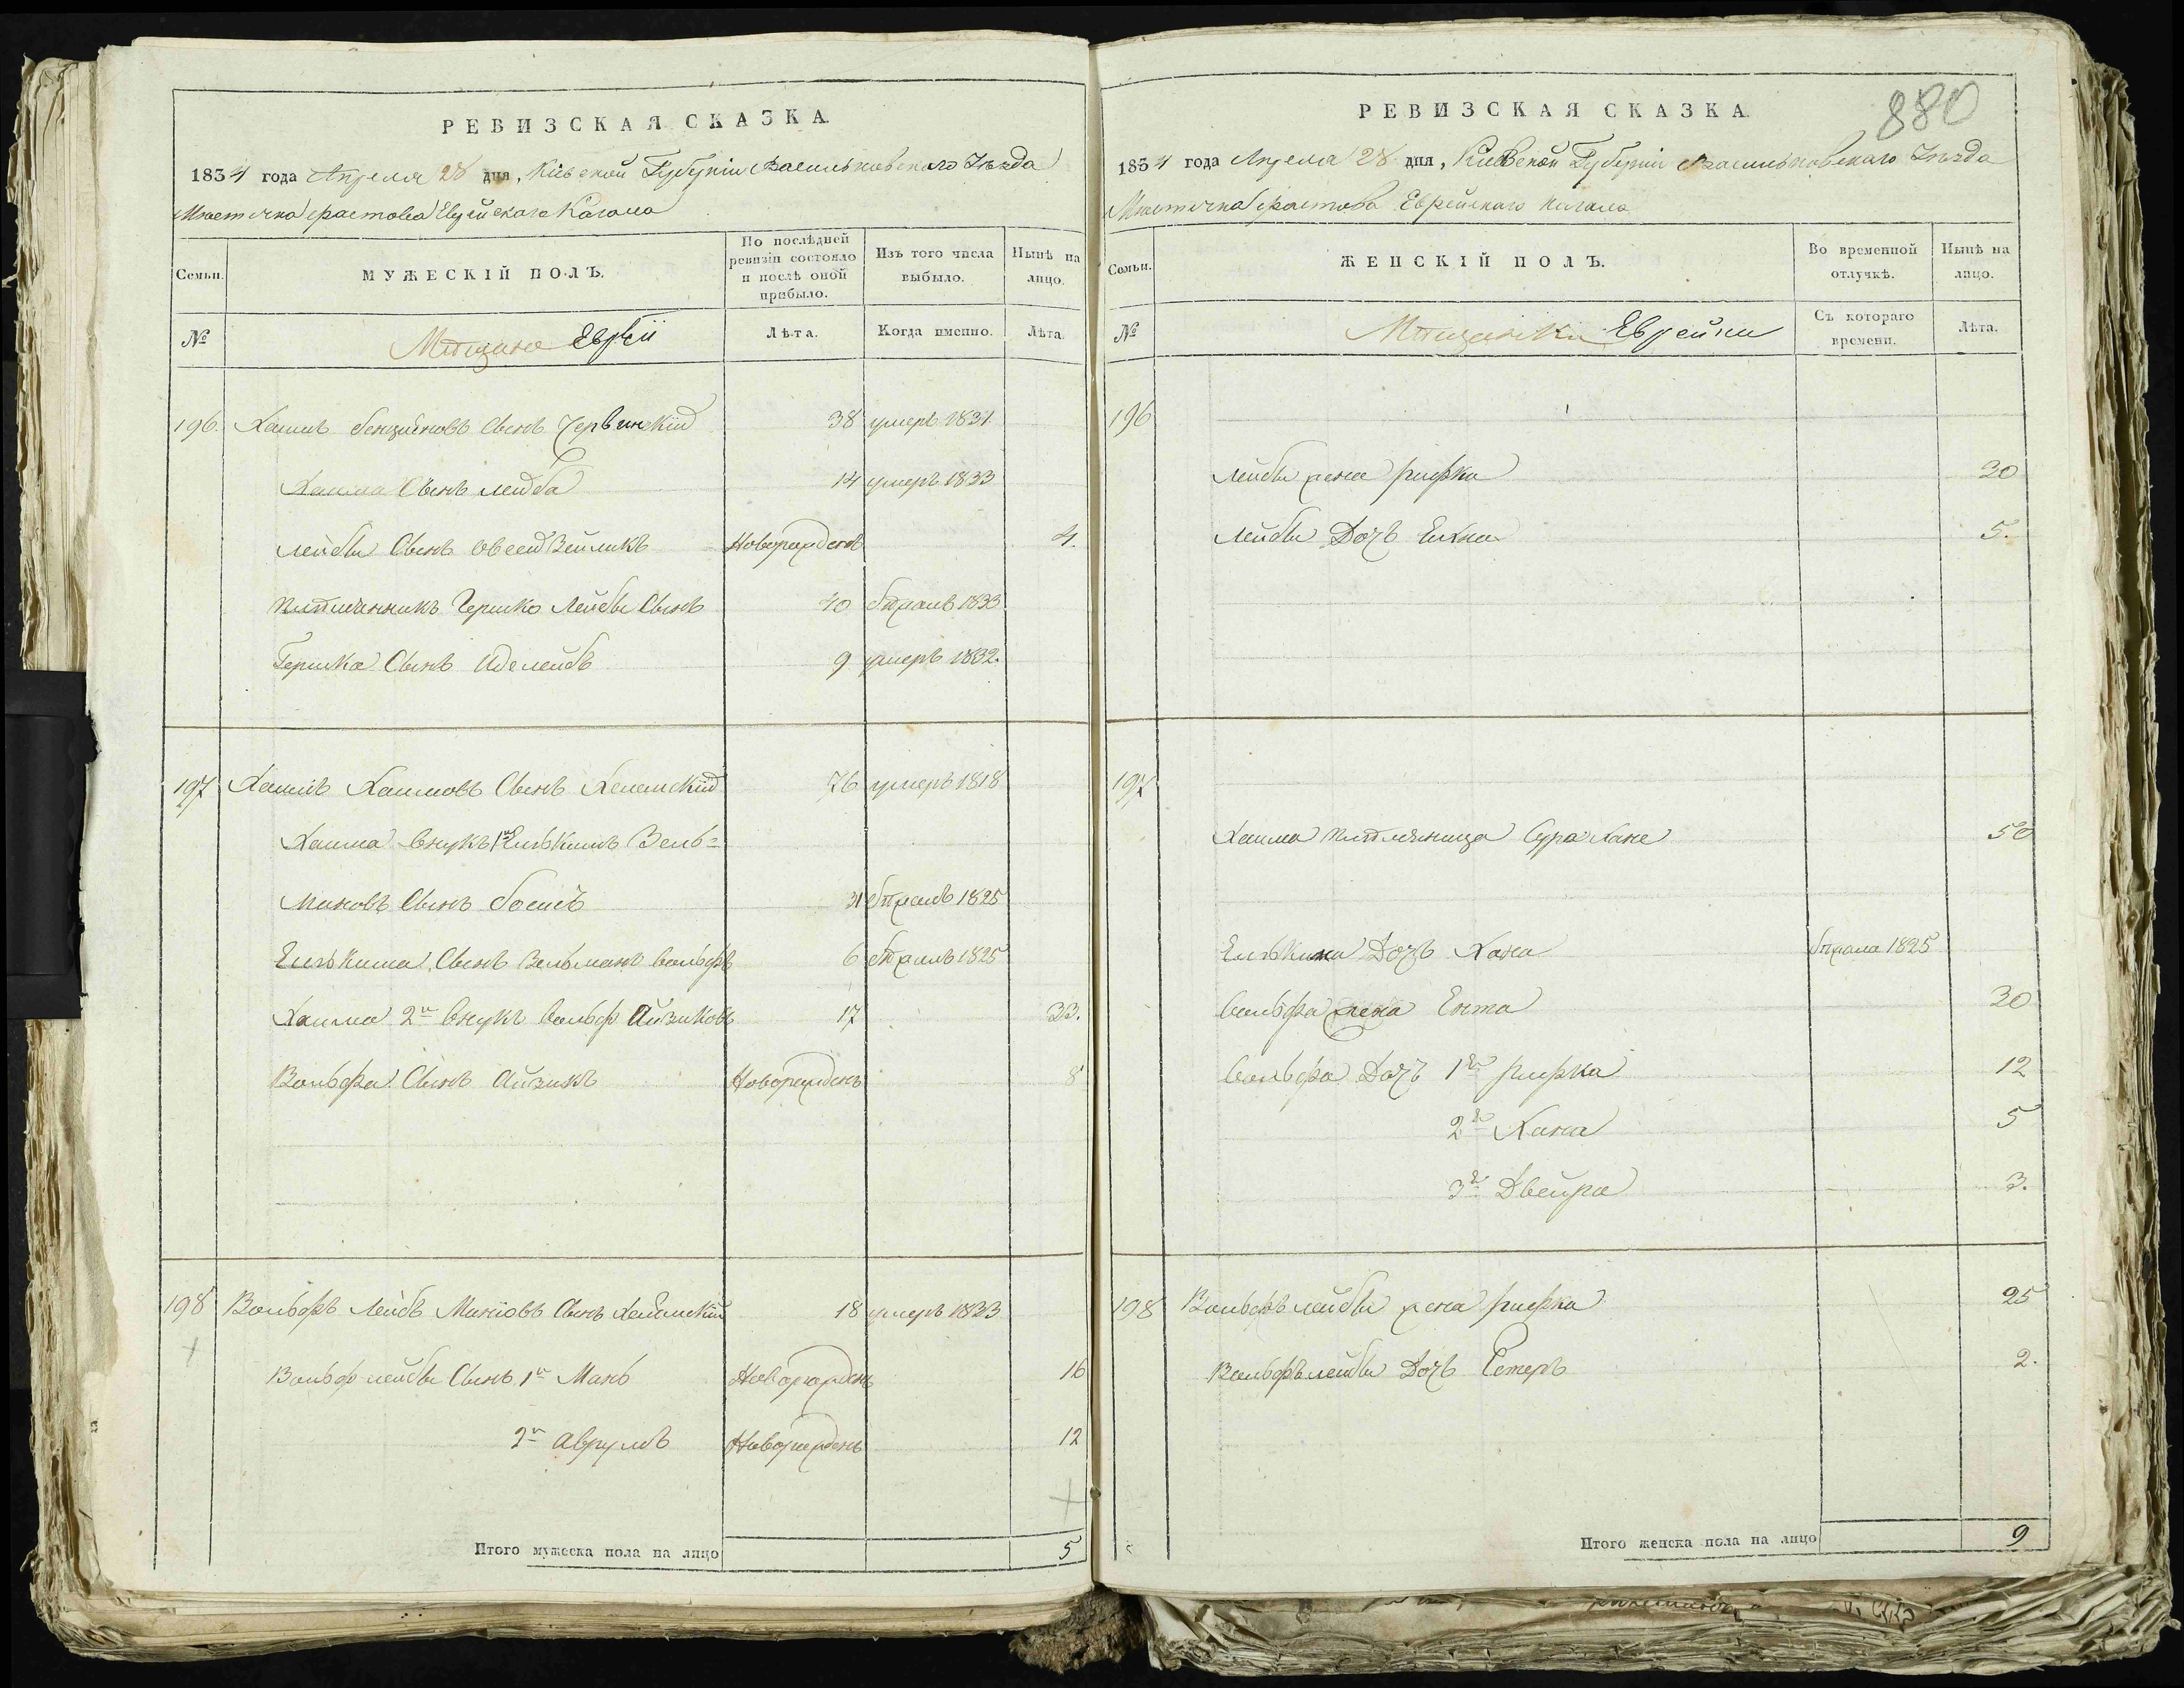 РЕВИЗСКАЯ СКАЗКА.
1834 года Апреля 28 дня, Кіевской Губерніи Васильковского Уѣзда
Мѣстечка Фастова Еврейскаго Кагала
Семьи. МУЖЕСКІЙ ПОЛЪ. По послѣдней ревизіи состояло и послѣ оной прибыло. Изъ того числа выбыло. Нынѣ на лицо.
№ Мѣщане Евреи Лѣта. Когда именно. Лѣта.
196. Хаимъ Бенціоновъ Сынъ Червинскій 38 умеръ 1831
Хаима Сынъ Лейба 14 умеръ 1833
Лейбы Сынъ Овсей Зейликъ Новорожденъ 4.
Племянникъ Гершко Лейбы Сынъ 40 бѣжалъ 1833
Гершка Сынъ Иделейбъ 9 умеръ 1832.
197 Хаимъ Хаимовъ Сынъ Хелемскій 76 умеръ 1818
Хаима Внукъ 1й ЕльКимъ Зель=
мановъ Сынъ 31 бѣжалъ 1825
ЕльКима Сынъ Зельманъ Вольфъ 6 бѣжалъ 1825
Хаима 2й Внукъ Вольф Айзиковъ 17 33.
Вольфа Сынъ Айзикъ Новорожденъ 8
198 Вольфъ Лейбъ Маніовъ Сынъ Хелемскій 18 умеръ 1833
Вольф Лейбы Сынъ 1й Мань Новорожденъ 16
2й Аврумъ Новорожденъ 12
Итого мужеска пола на лицо 5
880
РЕВИЗСКАЯ СКАЗКА.
1834 года Апреля 28 дня, Кіевской Губерніи Васильковскаго Уѣзда
Мѣстечка Фастова Еврейскаго Кагала
Семьи. ЖЕНСКІЙ ПОЛЪ. Во временной отлучкѣ. Нынѣ на лицо.
№ Мѣщанки Еврейки Съ котораго времени. Лѣта.
196
Лейбы жена Рифка 30
Лейбы Дочь Енна 5.
197
Хаима племянница Сура Хане 50
ЕльКима Дочь Хана бѣжала 1825
Вольфа жена Ента 30
Вольфа Дочь 1я Рифка 12
2я Хана 5
3я Двейра 3.
198 Вольфъ Лейбы жена Рифка 25
Вольфъ Лейбы Дочь Естеръ 2.
Итого женска пола на лицо 9